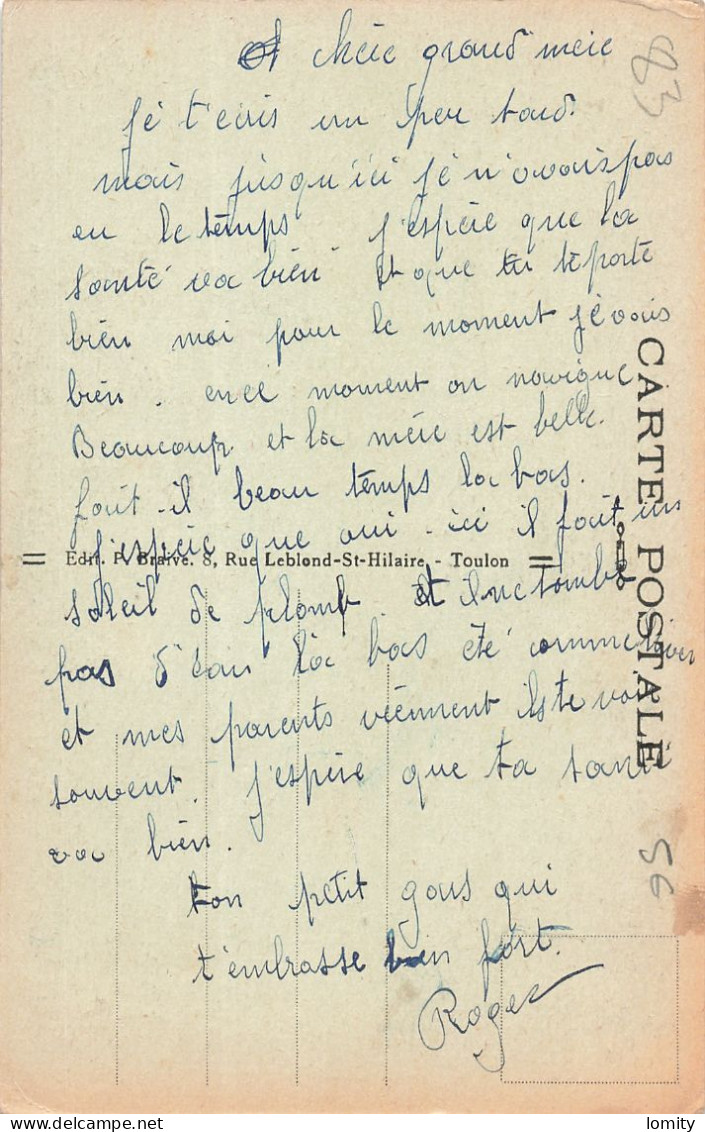 chère grand mère
je t'ecris un peu tard.
mais jusqu'ici je n'avais pas
eu le temps j'espère que la
santé va bien et que tu te porte
bien moi pour le moment je vais
bien. en ce moment on navigue
Beaucoup et la mère est belle.
fait-il beau temps la bas.
j'espère que oui - ici il fait un
soleil de plomb et il ne tombe
pas d'eau là bas été comme
et mes parents viennent ils te voir
souvent. j'espère que ta santé
va bien.
ton petit gars qui
t'embrasse bien fort.
Roger
83
CARTE POSTALE
Edit. P. Braive. 8, Rue Leblond-St-Hilaire. - Toulon
56
lomity